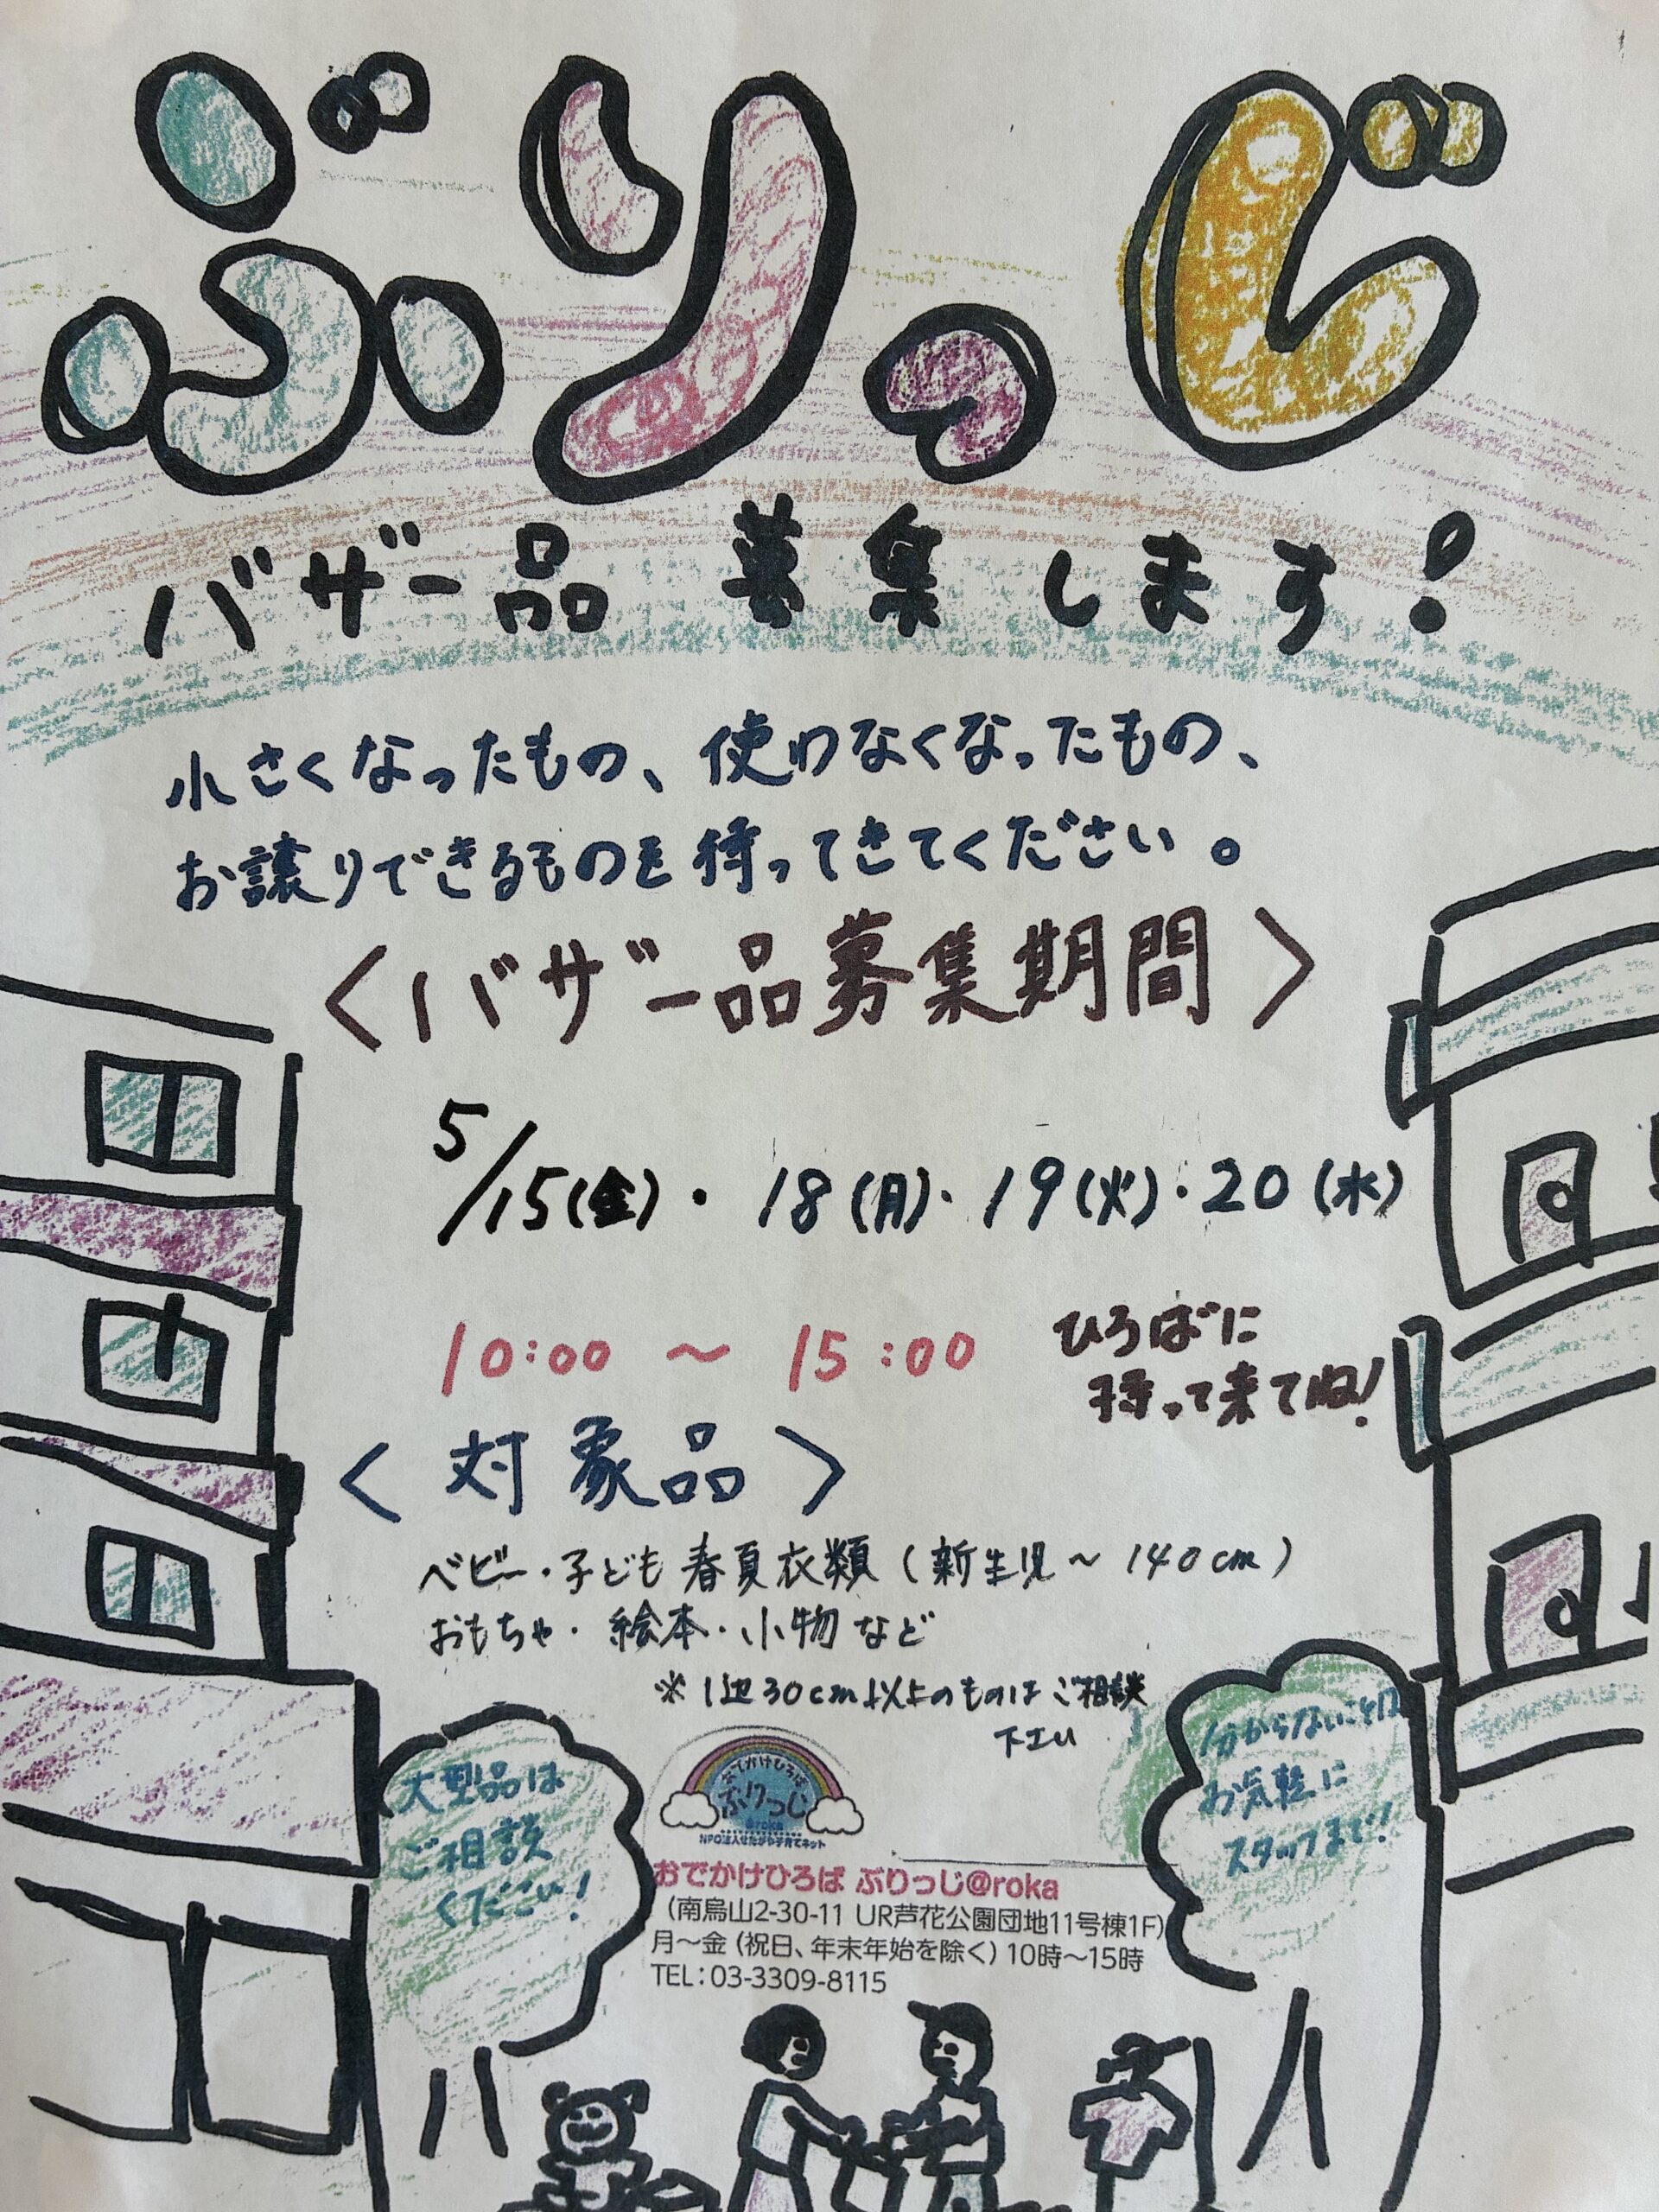 ぶりっじ
バザー品 募集します!
小さくなったもの、使わなくなったもの、
お譲りできるものを持ってきてください。
<バザー品募集期間>
5/15(金)・18(月)・19(火)・20(水)
10:00 ～ 15:00
ひろばに
持って来てね!
<対象品>
ベビー・子ども 春夏衣類 (新生児～140cm)
おもちゃ・絵本・小物 など
※1辺30cm以上のものは ご相談
下さい
大型品は
ご相談
ください!
分からないことは
お気軽に
スタッフまで!
おでかけひろば
ぶりっじ
@roka
NPO法人せたがや子育てネット
おでかけひろば ぶりっじ@roka
(南烏山2-30-11 UR芦花公園団地11号棟1F)
月～金 (祝日、年末年始を除く) 10時～15時
TEL:03-3309-8115